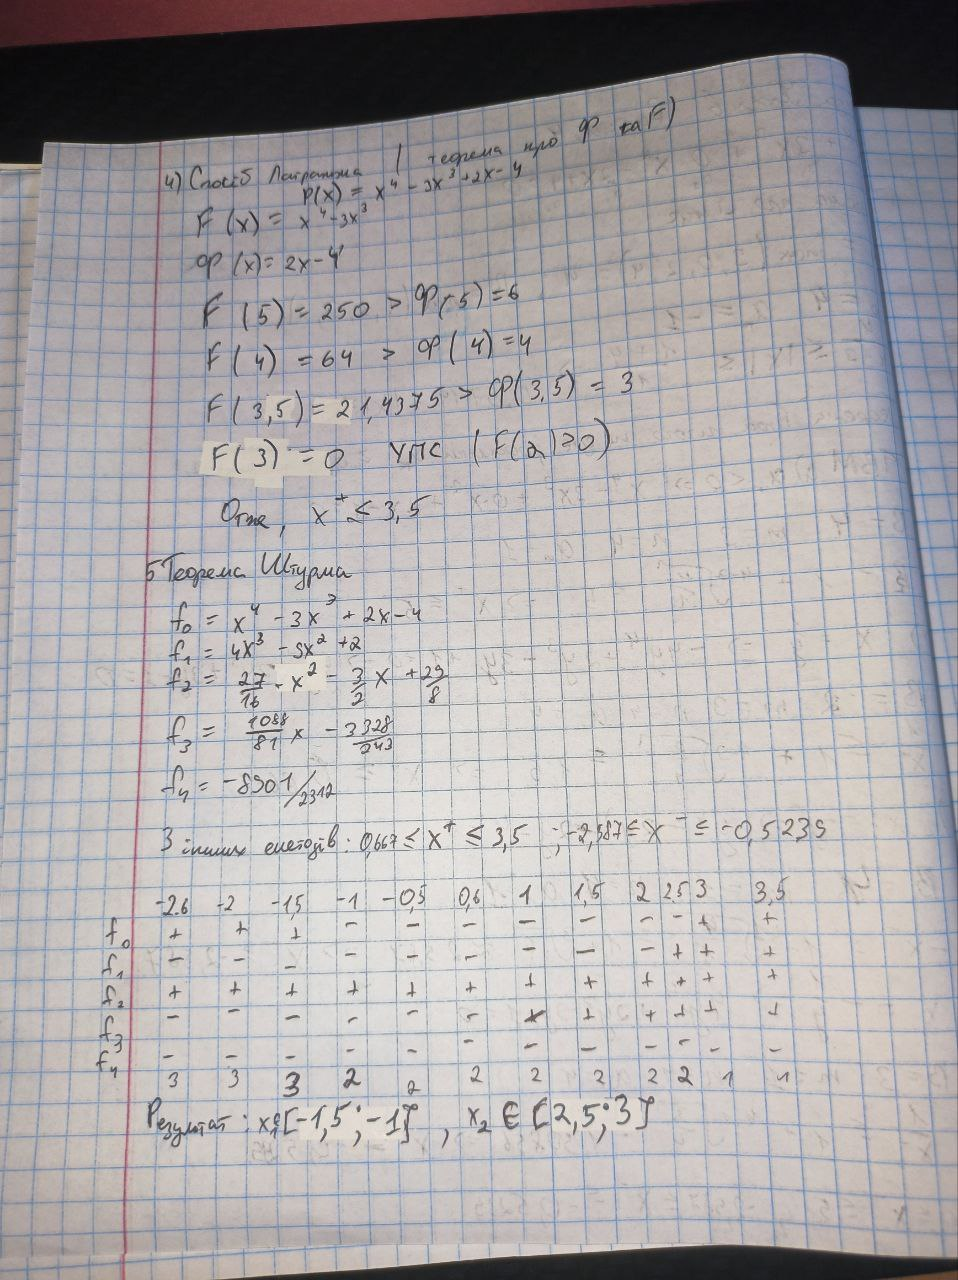 4) Спосіб Лагранжа (теорема про Ф та F)
P(x) = x⁴ - 3x³ + 2x - 4
F(x) = x⁴ - 3x³
Ф(x) = 2x - 4
F(5) = 250 > Ф(5) = 6
F(4) = 64 > Ф(4) = 4
F(3,5) = 21,4375 > Ф(3,5) = 3
F(3) = 0 упс (F(2)≥0)
Отже, x⁺ ≤ 3,5
5 Теорема Штурма
f₀ = x⁴ - 3x³ + 2x - 4
f₁ = 4x³ - 9x² + 2
f₂ = 27/16 · x² - 3/2 x + 29/8
f₃ = 1088/81 x - 3328/243
f₄ = -8901/2312
З інших методів: 0,667 ≤ x⁺ ≤ 3,5 ; -2,587 ≤ x⁻ ≤ -0,5239
-2.6 -2 -1,5 -1 -0,5 0,6 1 1,5 2 2,5 3 3,5
f₀ + + + - - - - - - - + +
f₁ - - - - - - - - - + + +
f₂ + + + + + + + + + + + +
f₃ - - - - - - + + + + + +
f₄ - - - - - - - - - - - -
3 3 3 2 2 2 2 2 2 2 1 1
Результат: x₁∈[-1,5; -1], x₂ ∈ [2,5; 3]